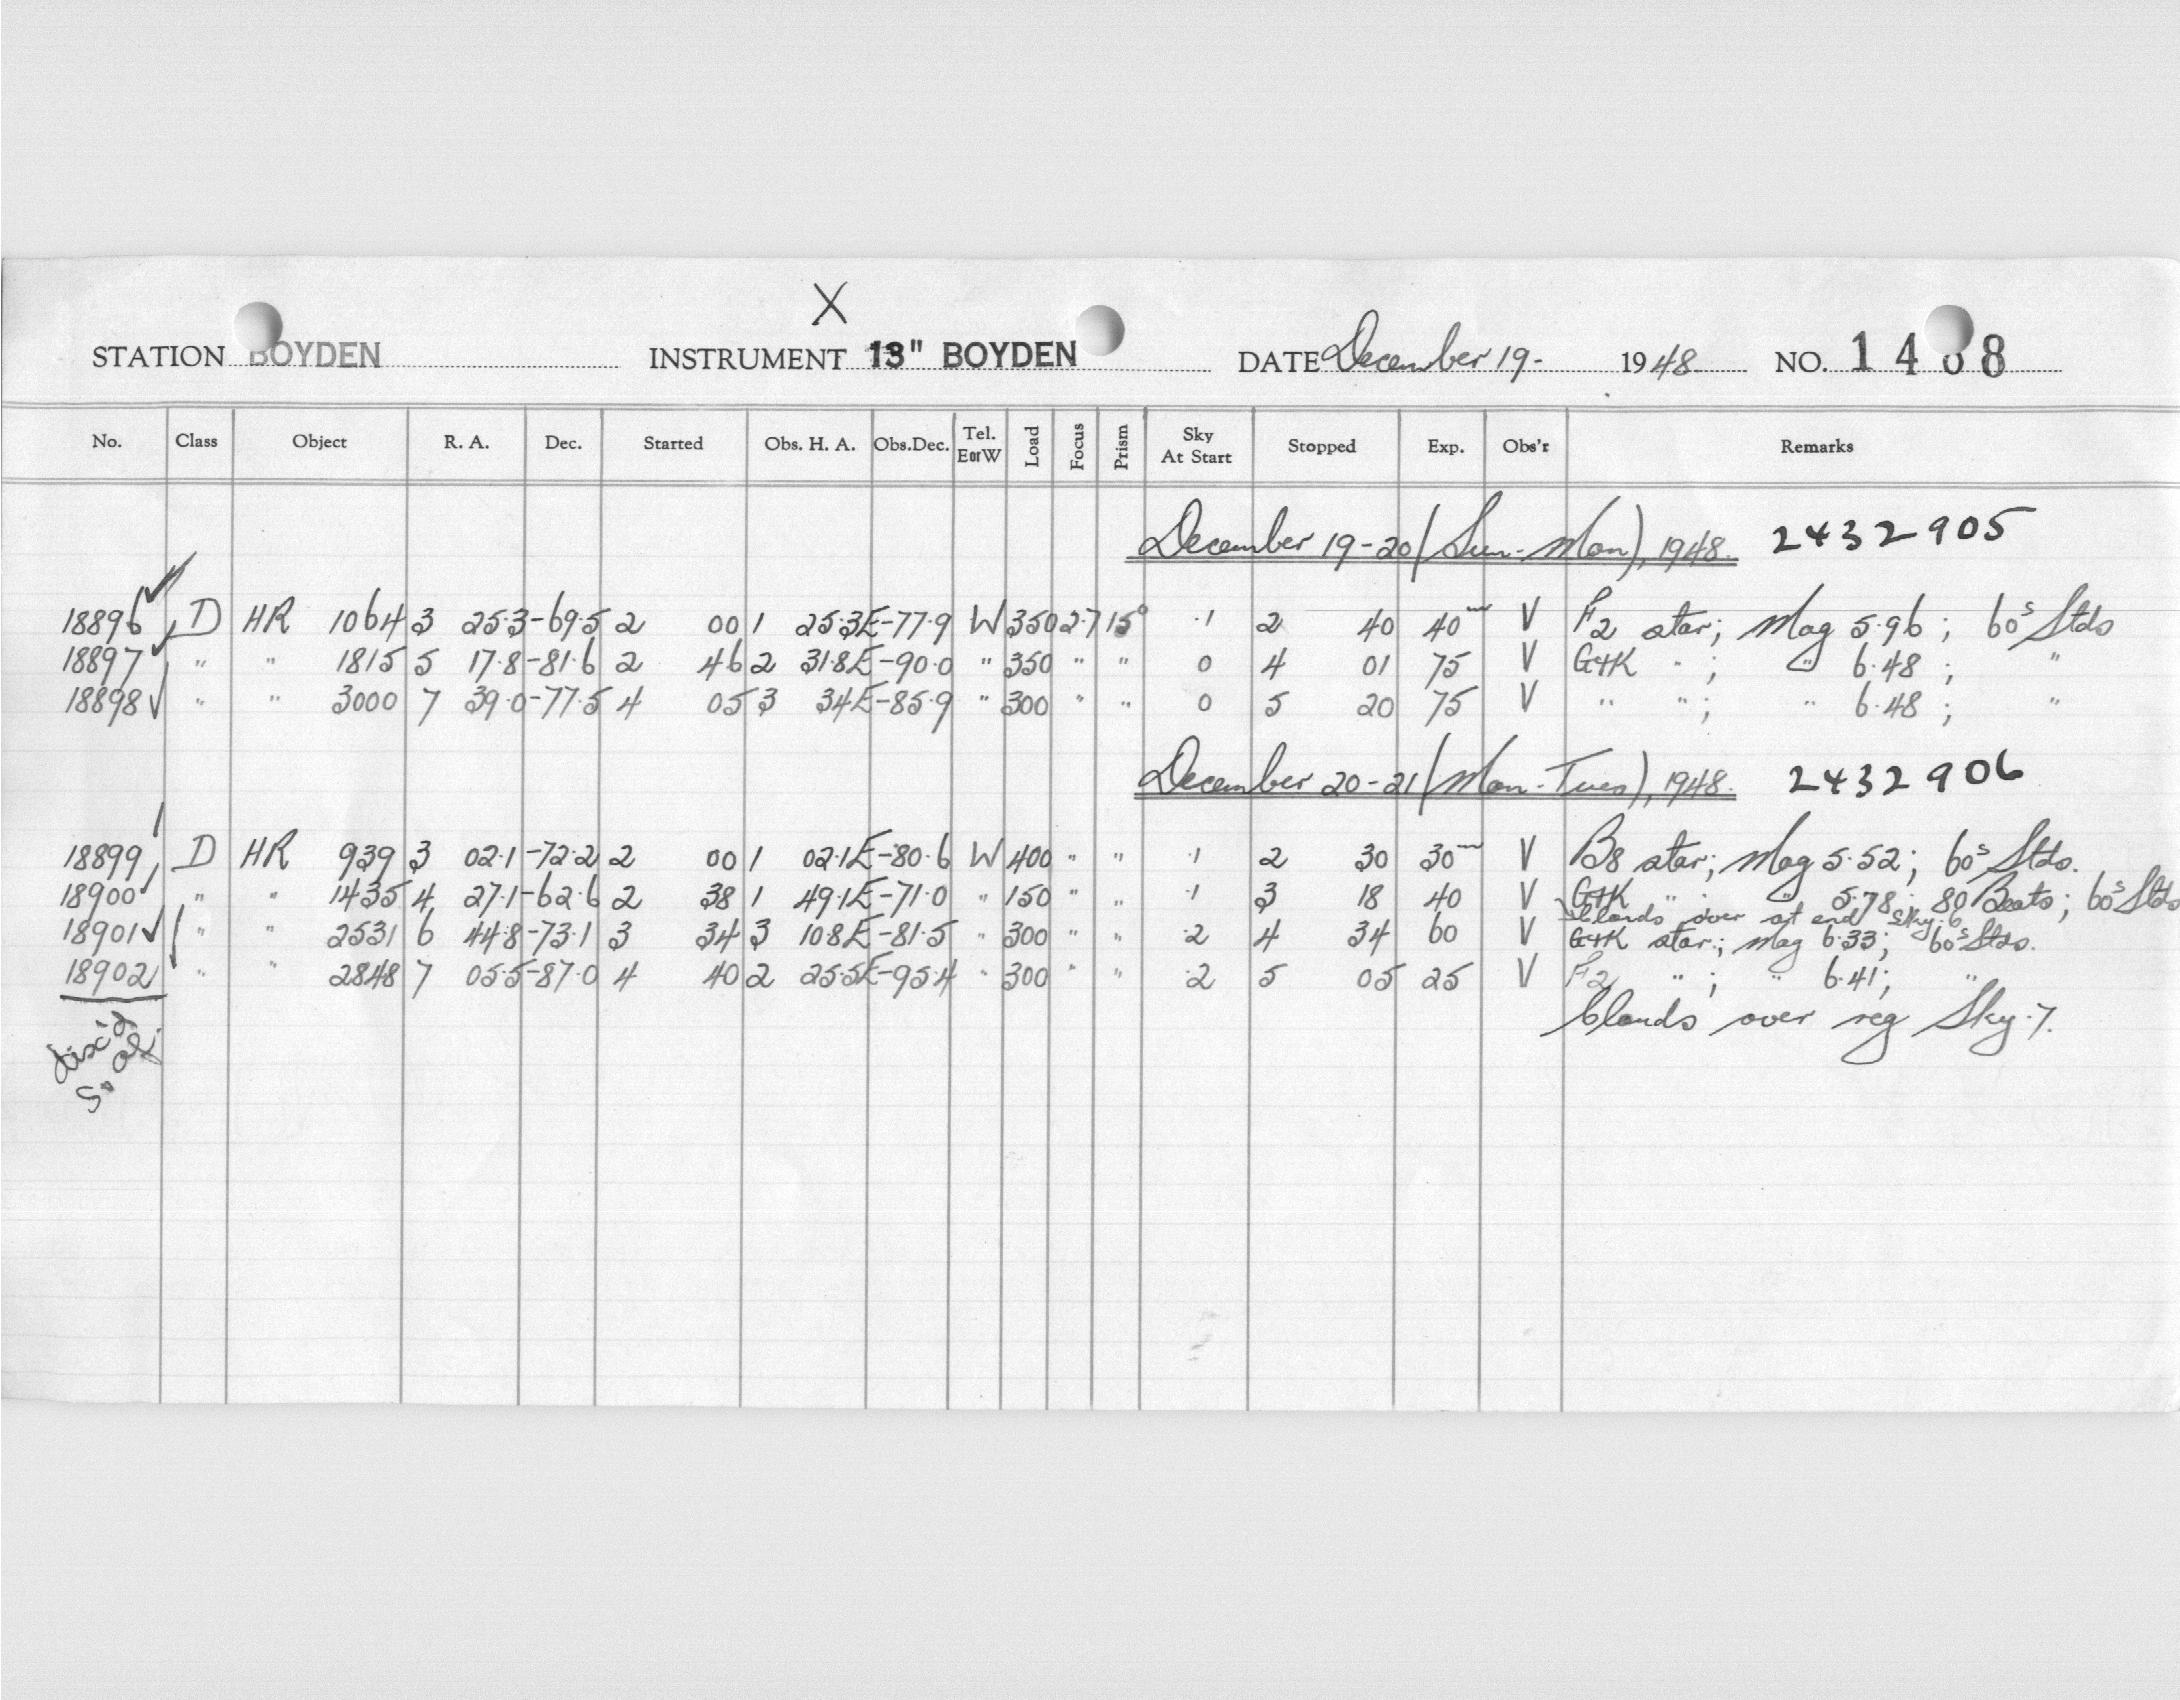 X
STATION BOYDEN INSTRUMENT 13" BOYDEN DATE December 19- 1948 NO. 1408
No. Class Object R. A. Dec. Started Obs. H. A. Obs.Dec. Tel. EorW Load Focus Prism Sky At Start Stopped Exp. Obs'r Remarks
December 19-20 (Sun-Mon), 1948. 2432905
18896 D HR 1064 3 25.3 -69.5 2 00 1 25.3E -77.9 W 350 2.7 15° .1 2 40 40m V F2 star; Mag 5.96; 60s Stds
18897 " " 1815 5 17.8 -81.6 2 46 2 31.8E -90.0 " 350 " " 0 4 01 75 V G+K " ; " 6.48 ; "
18898 " " 3000 7 39.0 -77.5 4 05 3 34E -85.9 " 300 " " 0 5 20 75 V " " ; " 6.48 ; "
December 20-21 (Mon-Tues), 1948. 2432906
18899 D HR 939 3 02.1 -72.2 2 00 1 02.1E -80.6 W 400 " " .1 2 30 30m V B8 star; Mag 5.52; 60s Stds.
18900 " " 1435 4 27.1 -62.6 2 38 1 49.1E -71.0 " 150 " " .1 3 18 40 V G+K " ; " 5.78; 80 Beats; 60s Stds
Clouds over at end Sky .6
18901 " " 2531 6 44.8 -73.1 3 34 3 10.8E -81.5 " 300 " " .2 4 34 60 V G+K star; Mag 6.33; 60s Stds.
18902 " " 2848 7 05.5 -87.0 4 40 2 25.5E -95.4 " 300 " " .2 5 05 25 V F2 " ; " 6.41; "
Clouds over reg Sky .7.